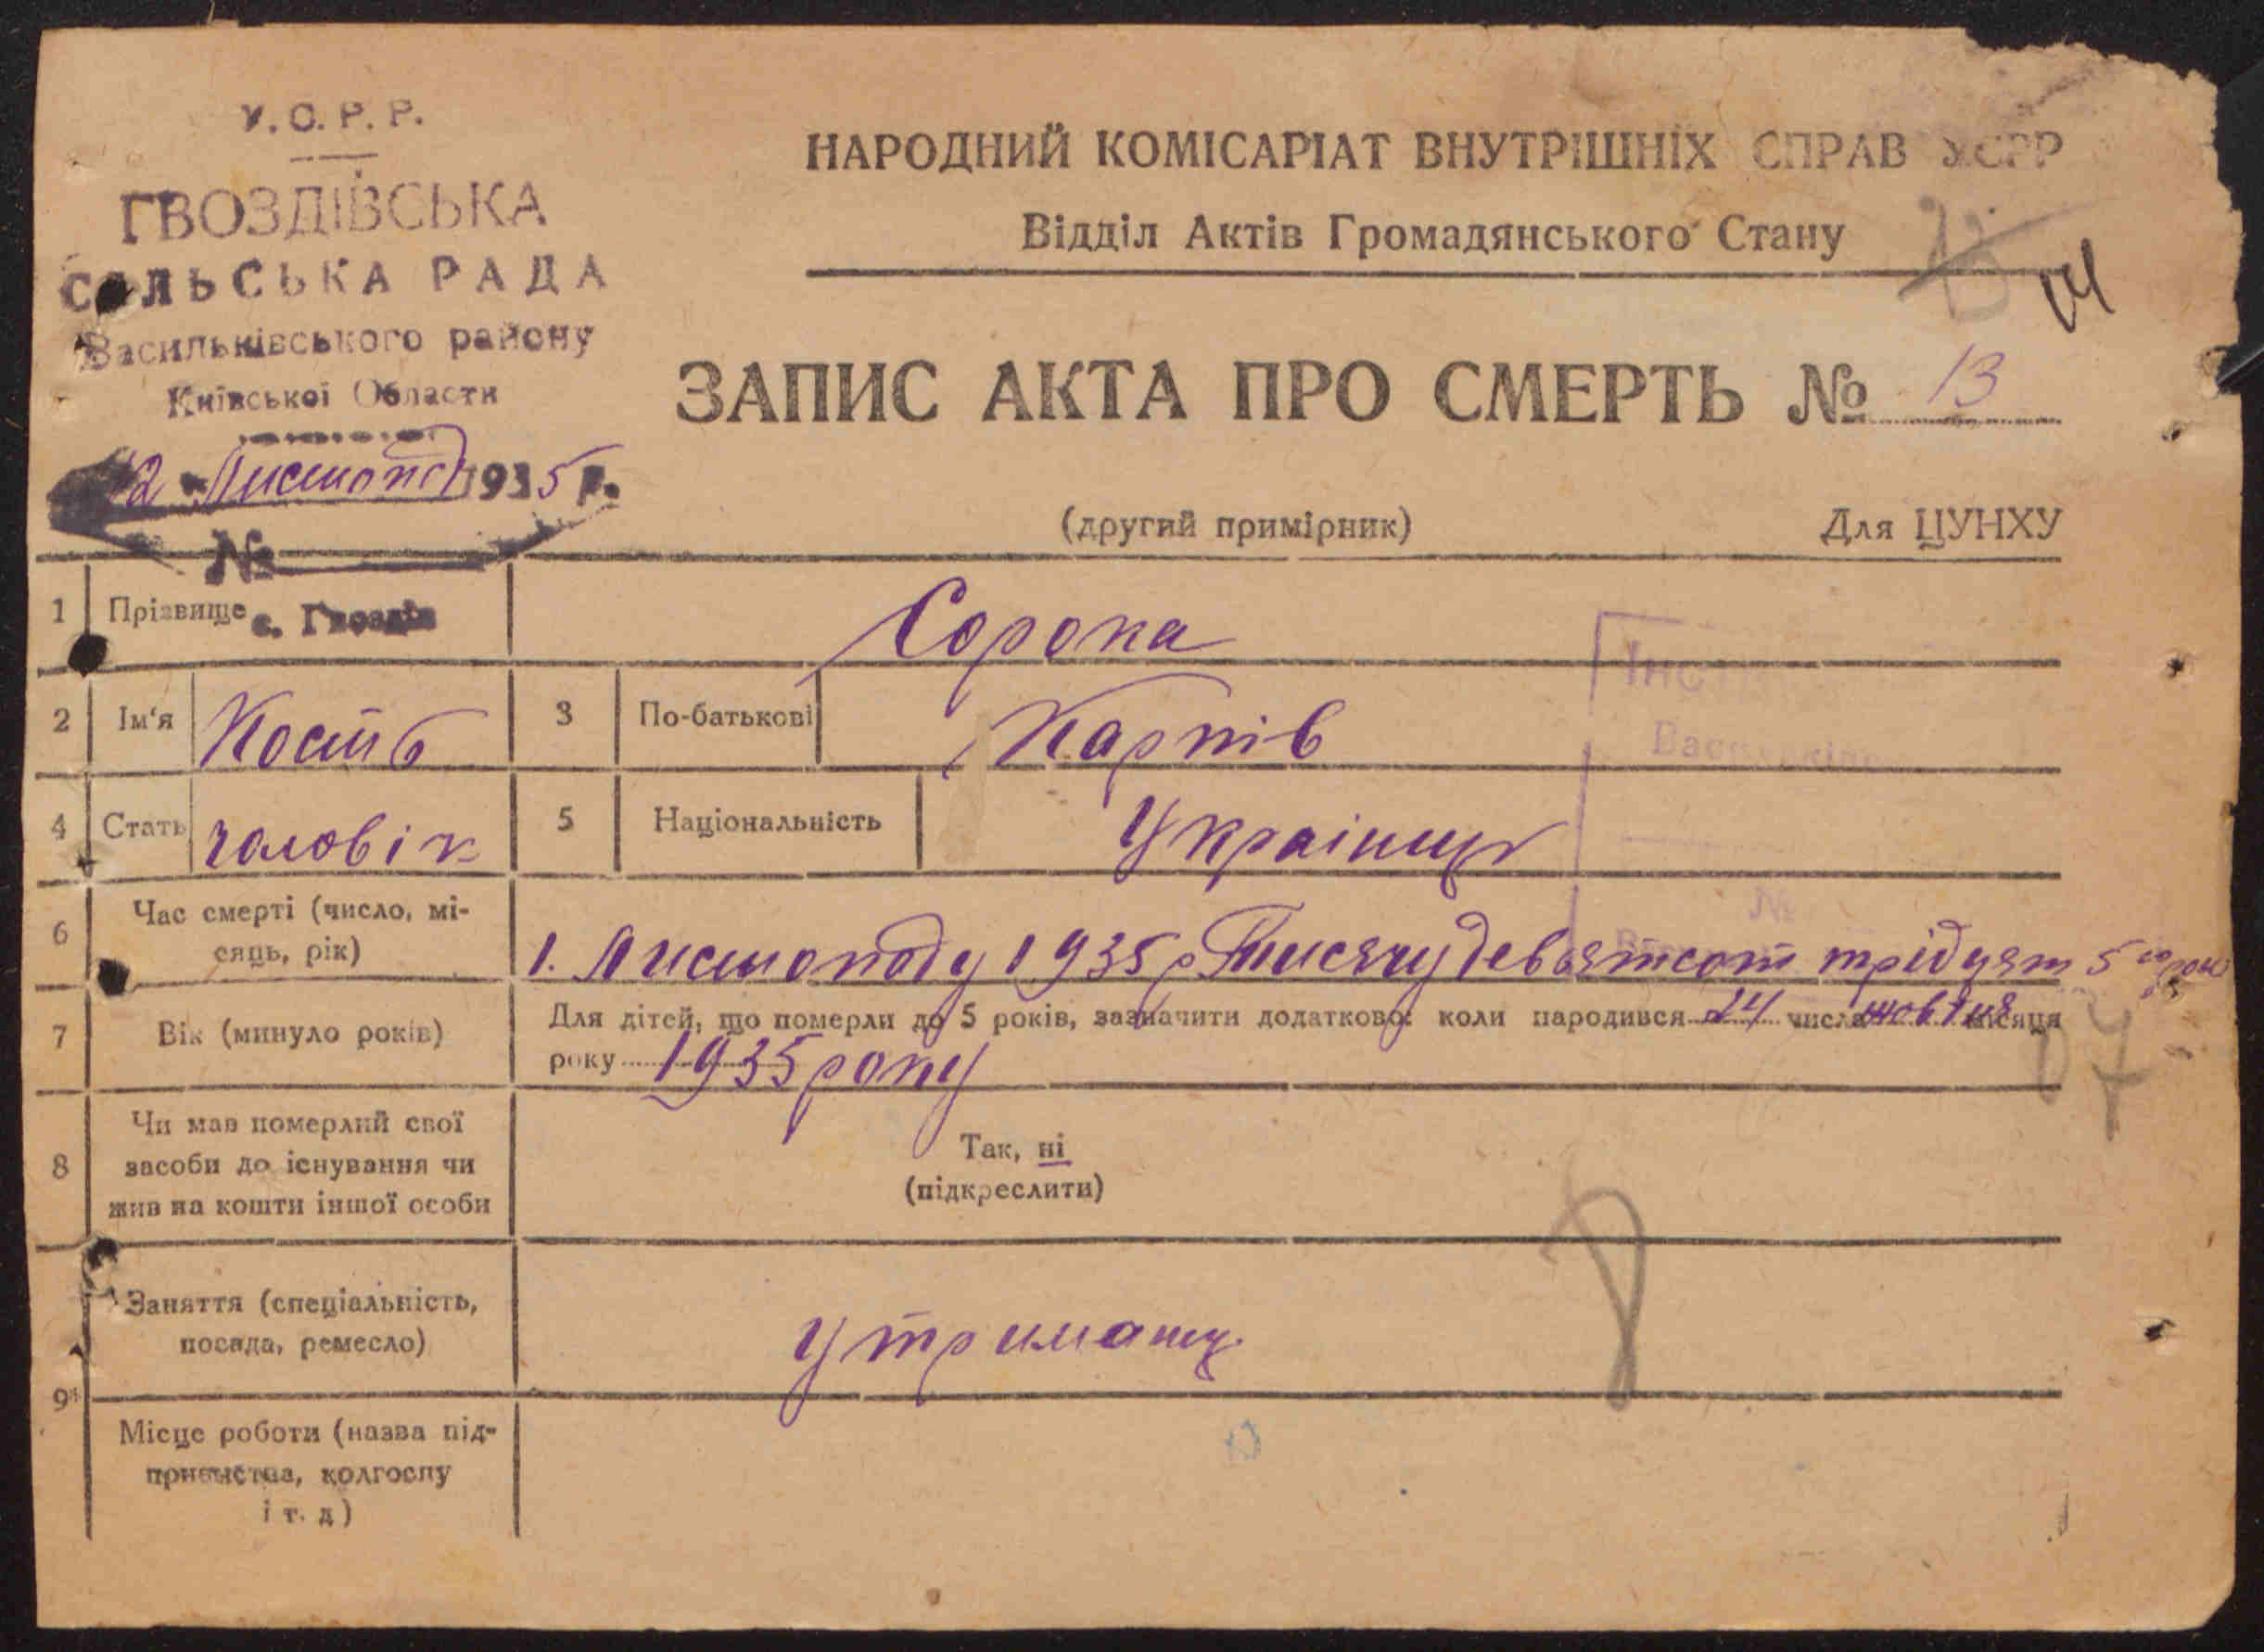 У.С.Р.Р.
ГВОЗДІВСЬКА
СІЛЬСЬКА РАДА
Васильківського району
Київської Области
12 Листопад 1935 р.
№
с. Гвоздів
НАРОДНИЙ КОМІСАРІАТ ВНУТРІШНІХ СПРАВ УСРР
Відділ Актів Громадянського Стану
ЗАПИС АКТА ПРО СМЕРТЬ № 13
(другий примірник) Для ЦУНХУ
1 Прізвище Сорока
2 Ім'я Кость 3 По-батькові Карпів
4 Стать чоловік 5 Національність Українець
6 Час смерті (число, мі-
сяць, рік) 1. Листопаду 1935 р Тисячу девятсот трідцят 5го року
7 Вік (минуло років) Для дітей, що померли до 5 років, зазначити додатково: коли народився 24 числа жовтня місяця
року 1935 року
8 Чи мав померлий свої
засоби до існування чи
жив на кошти іншої особи
Так, ні
(підкреслити)
9 Заняття (спеціальність,
посада, ремесло) утриманец
Місце роботи (назва під-
приємства, колгоспу
і т. д)